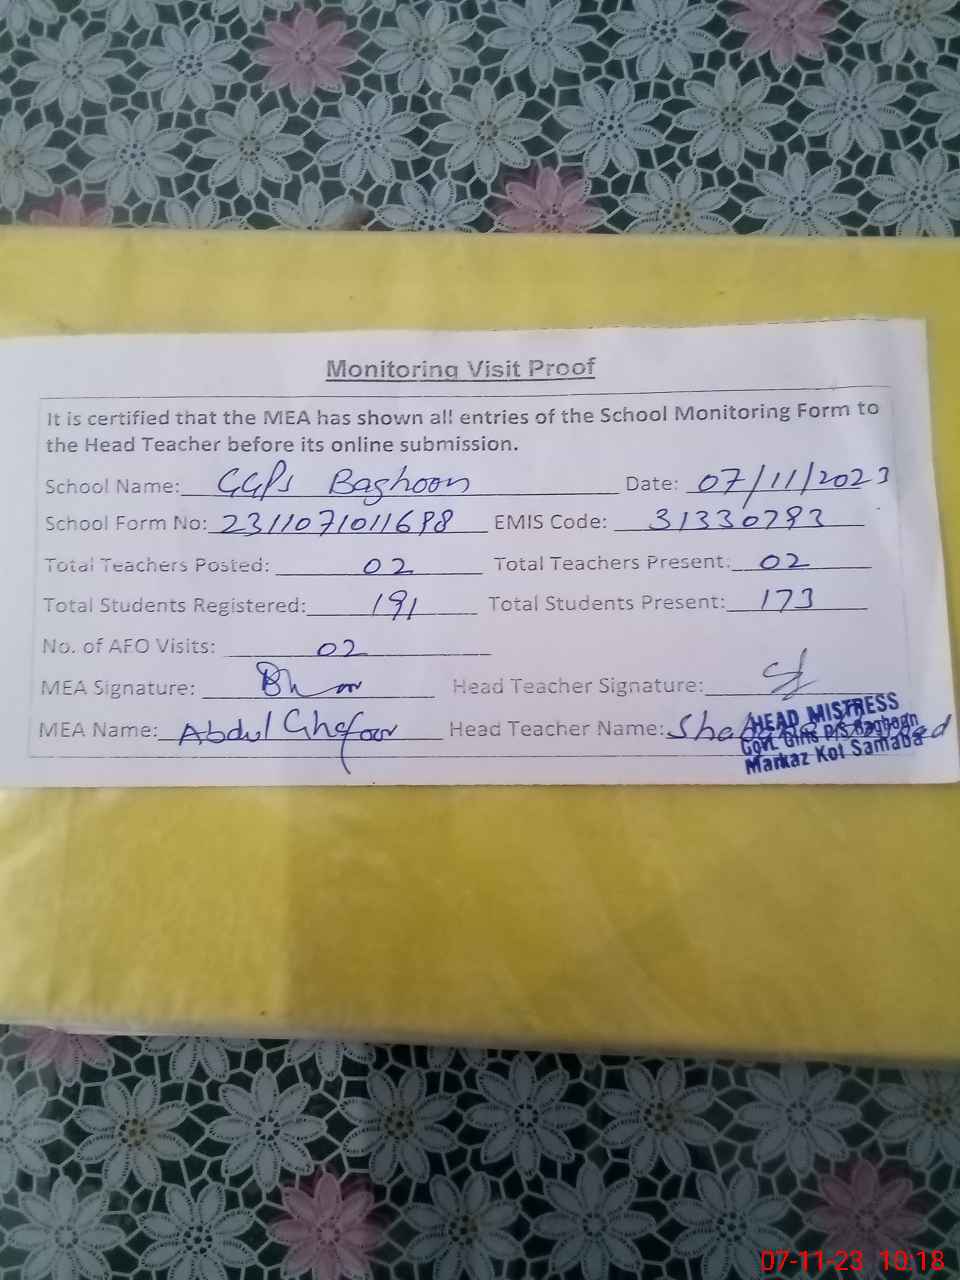 Monitoring Visit Proof
It is certified that the MEA has shown all entries of the School Monitoring Form to
the Head Teacher before its online submission.
School Name: GGPS Baghoon Date: 07/11/2023
School Form No: 2311071011698 EMIS Code: 31330793
Total Teachers Posted: 02 Total Teachers Present: 02
Total Students Registered: 191 Total Students Present: 173
No. of AEO Visits: 02
MEA Signature: Head Teacher Signature:
MEA Name: Abdul Ghafoor Head Teacher Name:
HEAD MISTRESS
Govt. Girls P/S Baghoon
Markaz Kot Samaba
07-11-23 10:18